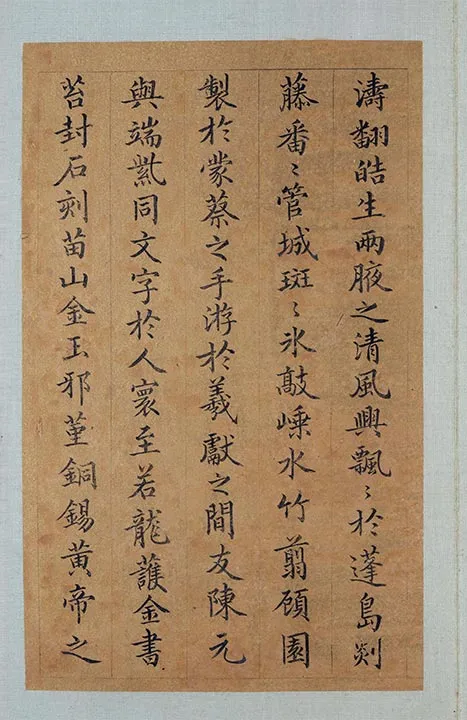 濤翻皓生兩腋之清風興飄〻於蓬島剡
藤番〻管城斑〻氷敲嵊水竹翦頋園
製於蒙蔡之手游於羲獻之間友陳元
與端紫同文字於人寰至若龍護金書
苔封石刻苗山金玉邪堇銅錫黄帝之